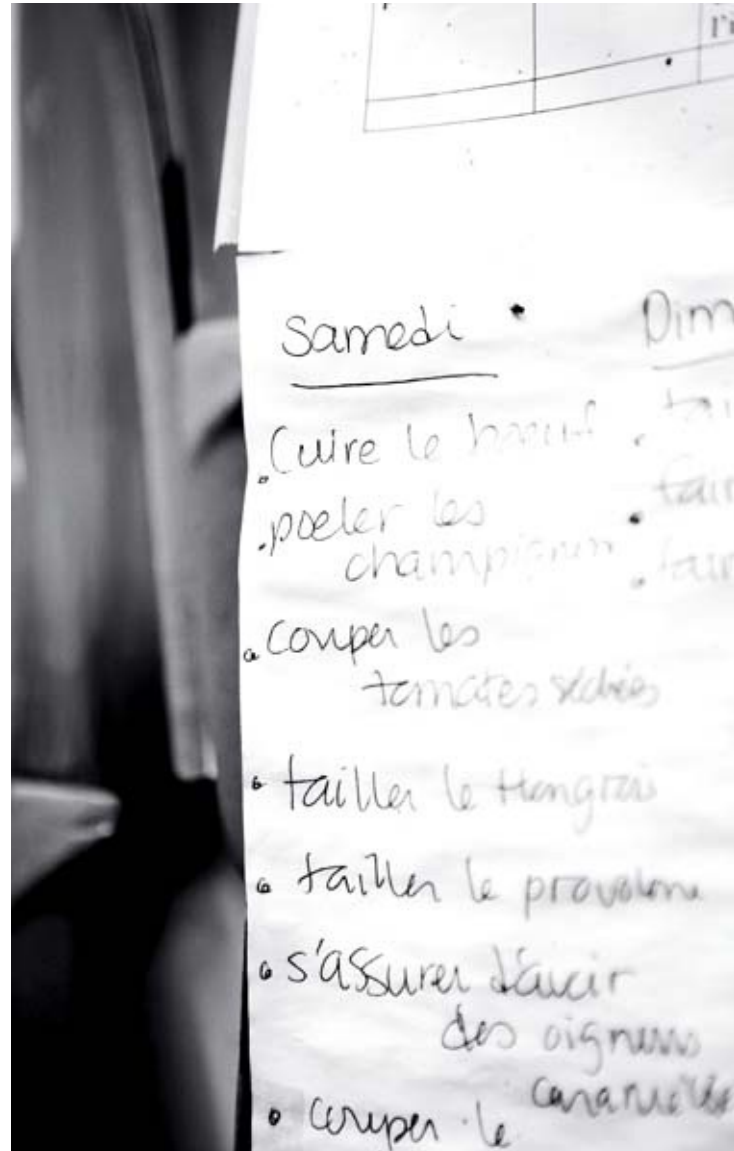 l'i
Samedi
Dim
Cuire le boeuf
tai
poeler les
fair
champignons
fair
couper les
tomates séchées
tailler le Hongrois
tailler le provolone
s'assurer d'avoir
des oignons
caramélisés
couper le